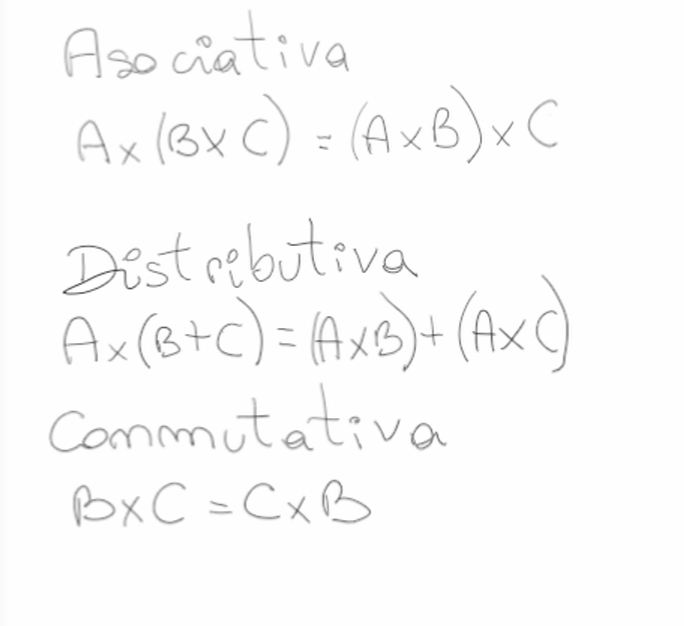 Asociativa
A x (B x C) = (A x B) x C
Distributiva
A x (B + C) = (A x B) + (A x C)
Conmutativa
B x C = C x B